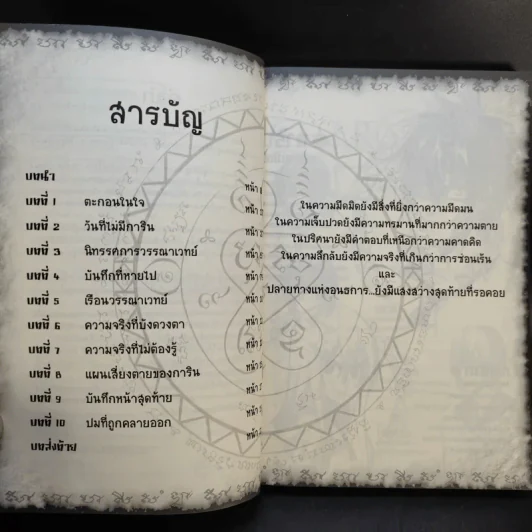 สารบัญ
บทนำ หน้า
บทที่ 1 ตะกอนในใจ หน้า
บทที่ 2 วันที่ไม่มีการิน หน้า
บทที่ 3 นิทรรศการวรรณาเวทย์ หน้า
บทที่ 4 บันทึกที่หายไป หน้า
บทที่ 5 เรือนวรรณาเวทย์ หน้า
บทที่ 6 ความจริงที่บังดวงตา หน้า
บทที่ 7 ความจริงที่ไม่ต้องรู้ หน้า
บทที่ 8 แผนเสี่ยงตายของการิน หน้า
บทที่ 9 บันทึกหน้าสุดท้าย หน้า
บทที่ 10 ปมที่ถูกคลายออก หน้า
บทส่งท้าย
ในความมืดมิดยังมีสิ่งที่ยิ่งกว่าความมืดมน
ในความเจ็บปวดยังมีความทรมานที่มากกว่าความตาย
ในปริศนายังมีคำตอบที่เหนือกว่าความคาดคิด
ในความลึกลับยังมีความจริงที่เกินกว่าการซ่อนเร้น
และ
ปลายทางแห่งอนธการ...ยังมีแสงสว่างสุดท้ายที่รอคอย